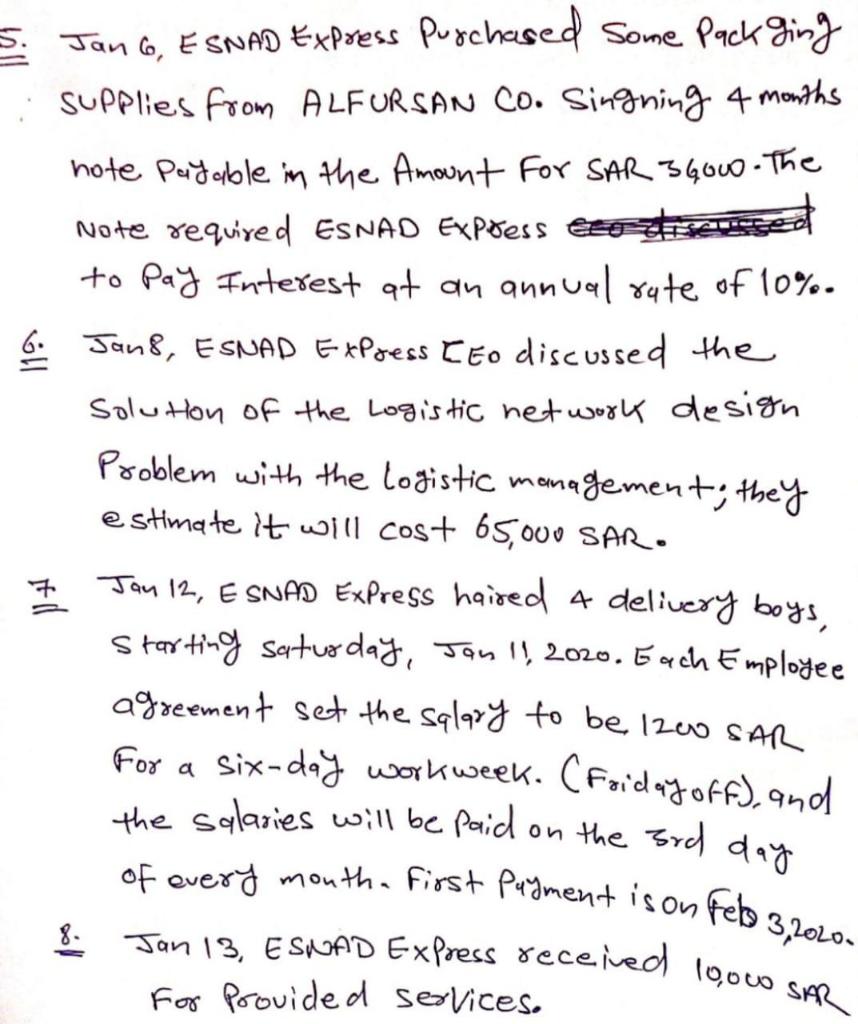 5. Jan 6, ESNAD Express Purchased Some Packging
supplies from ALFURSAN CO. Singning 4 months
note Payable in the Amount For SAR 36000. The
Note required ESNAD Express ceo discussed
to Pay Interest at an annual rate of 10%.
6. Jan 8, ESNAD Express CEO discussed the
Solution of the Logistic network design
Problem with the logistic management; they
estimate it will cost 65,000 SAR.
7 Jan 12, ESNAD Express haired 4 delivery boys,
starting saturday, Jan 11, 2020. Each Employee
agreement set the salary to be 1200 SAR
For a six-day workweek. (Friday off), and
the salaries will be Paid on the 3rd day
of every month. First Payment is on Feb 3, 2020.
8. Jan 13, ESNAD Express received 10,000 SAR
For Provided services.